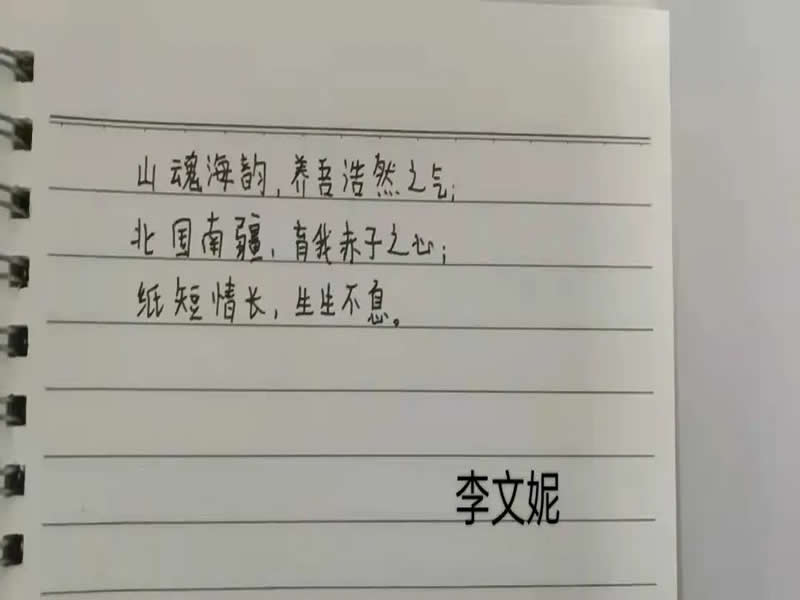 山魂海韵,养吾浩然之气;
北国南疆,育我赤子之心;
纸短情长,生生不息。
李文妮